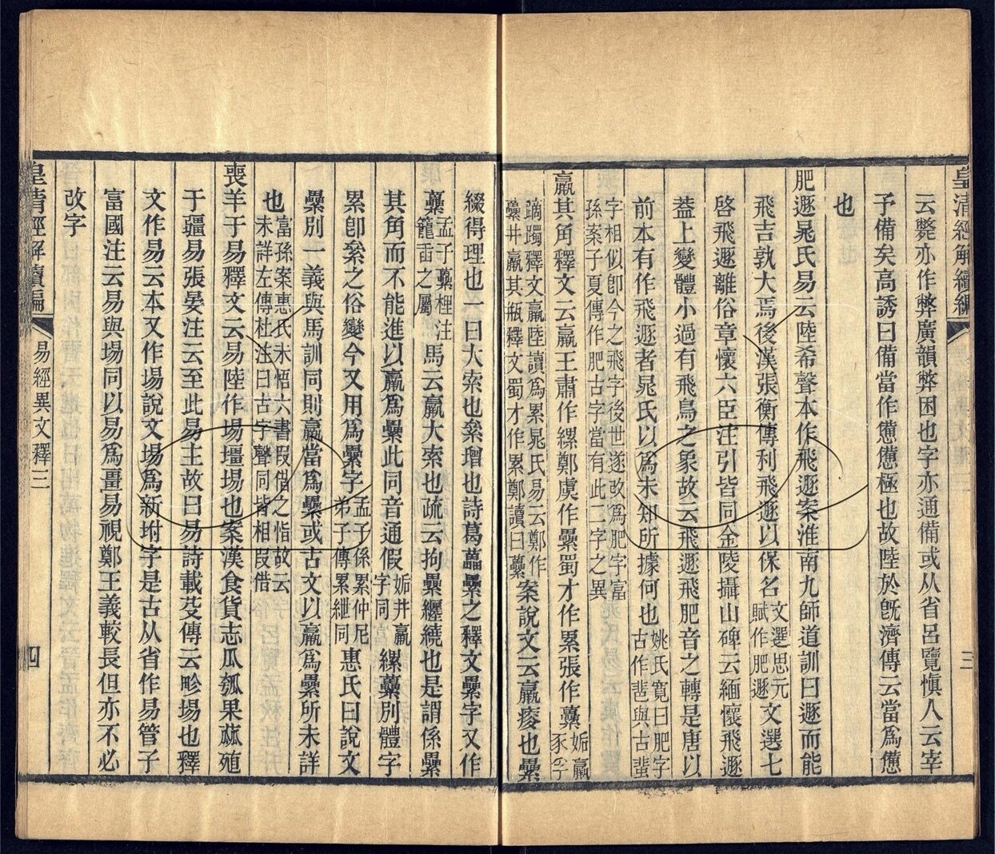 皇清經解續編
三
云斃亦作弊廣韻弊困也字亦通備或从省呂覽愼人云宰
予備矣高誘曰備當作憊憊極也故陸於旣濟傳云當爲憊
也
肥遯晁氏易云陸希聲本作飛遯案淮南九師道訓曰遯而能
飛吉孰大焉後漢張衡傳利飛遯以保名文選思元賦作肥遯文選七
啓飛遯離俗章懷六臣注引皆同金陵攝山碑云緬懷飛遯
葢上變體小過有飛鳥之象故云飛遯飛肥音之轉是唐以
前本有作飛遯者晁氏以爲未知所據何也姚氏寬曰肥字古作𦐈與古蜚
字相似卽今之飛字後世遂改爲肥字富孫案子夏傳作肥古字當有此二字之異
羸其角釋文云羸王肅作縲鄭虞作纍蜀才作累張作虆姤羸豕孚
蹢躅釋文羸陸讀爲累晁氏易云鄭作虆井羸其瓶釋文蜀才作累鄭讀曰虆案說文云羸痠也纍
綴得理也一曰大索也絫增也詩葛藟纍之釋文纍字又作
虆孟子虆梩注籠臿之屬馬云羸大索也疏云拘纍纏繞也是謂係纍
其角而不能進以羸爲纍此同音通假姤井羸字同縲虆別體字
累卽絫之俗變今又用爲纍字孟子係累仲尼弟子傳累紲同惠氏曰說文
纍別一義與馬訓同則羸當爲纍或古文以羸爲纍所未詳
也富孫案惠氏未悟六書叚借之恉故云未詳左傳杜注曰古字聲同皆相叚借
喪羊于易釋文云易陸作埸埸壃埸也案漢食貨志瓜瓠果蓏殖
于疆易張晏注云至此易主故曰易詩載芟傳云畛埸也釋
文作易云本又作埸說文埸爲新坿字是古从省作易管子
富國注云易與埸同以易爲畺易視鄭王義較長但亦不必
改字
皇清經解續編
易經異文釋三
四